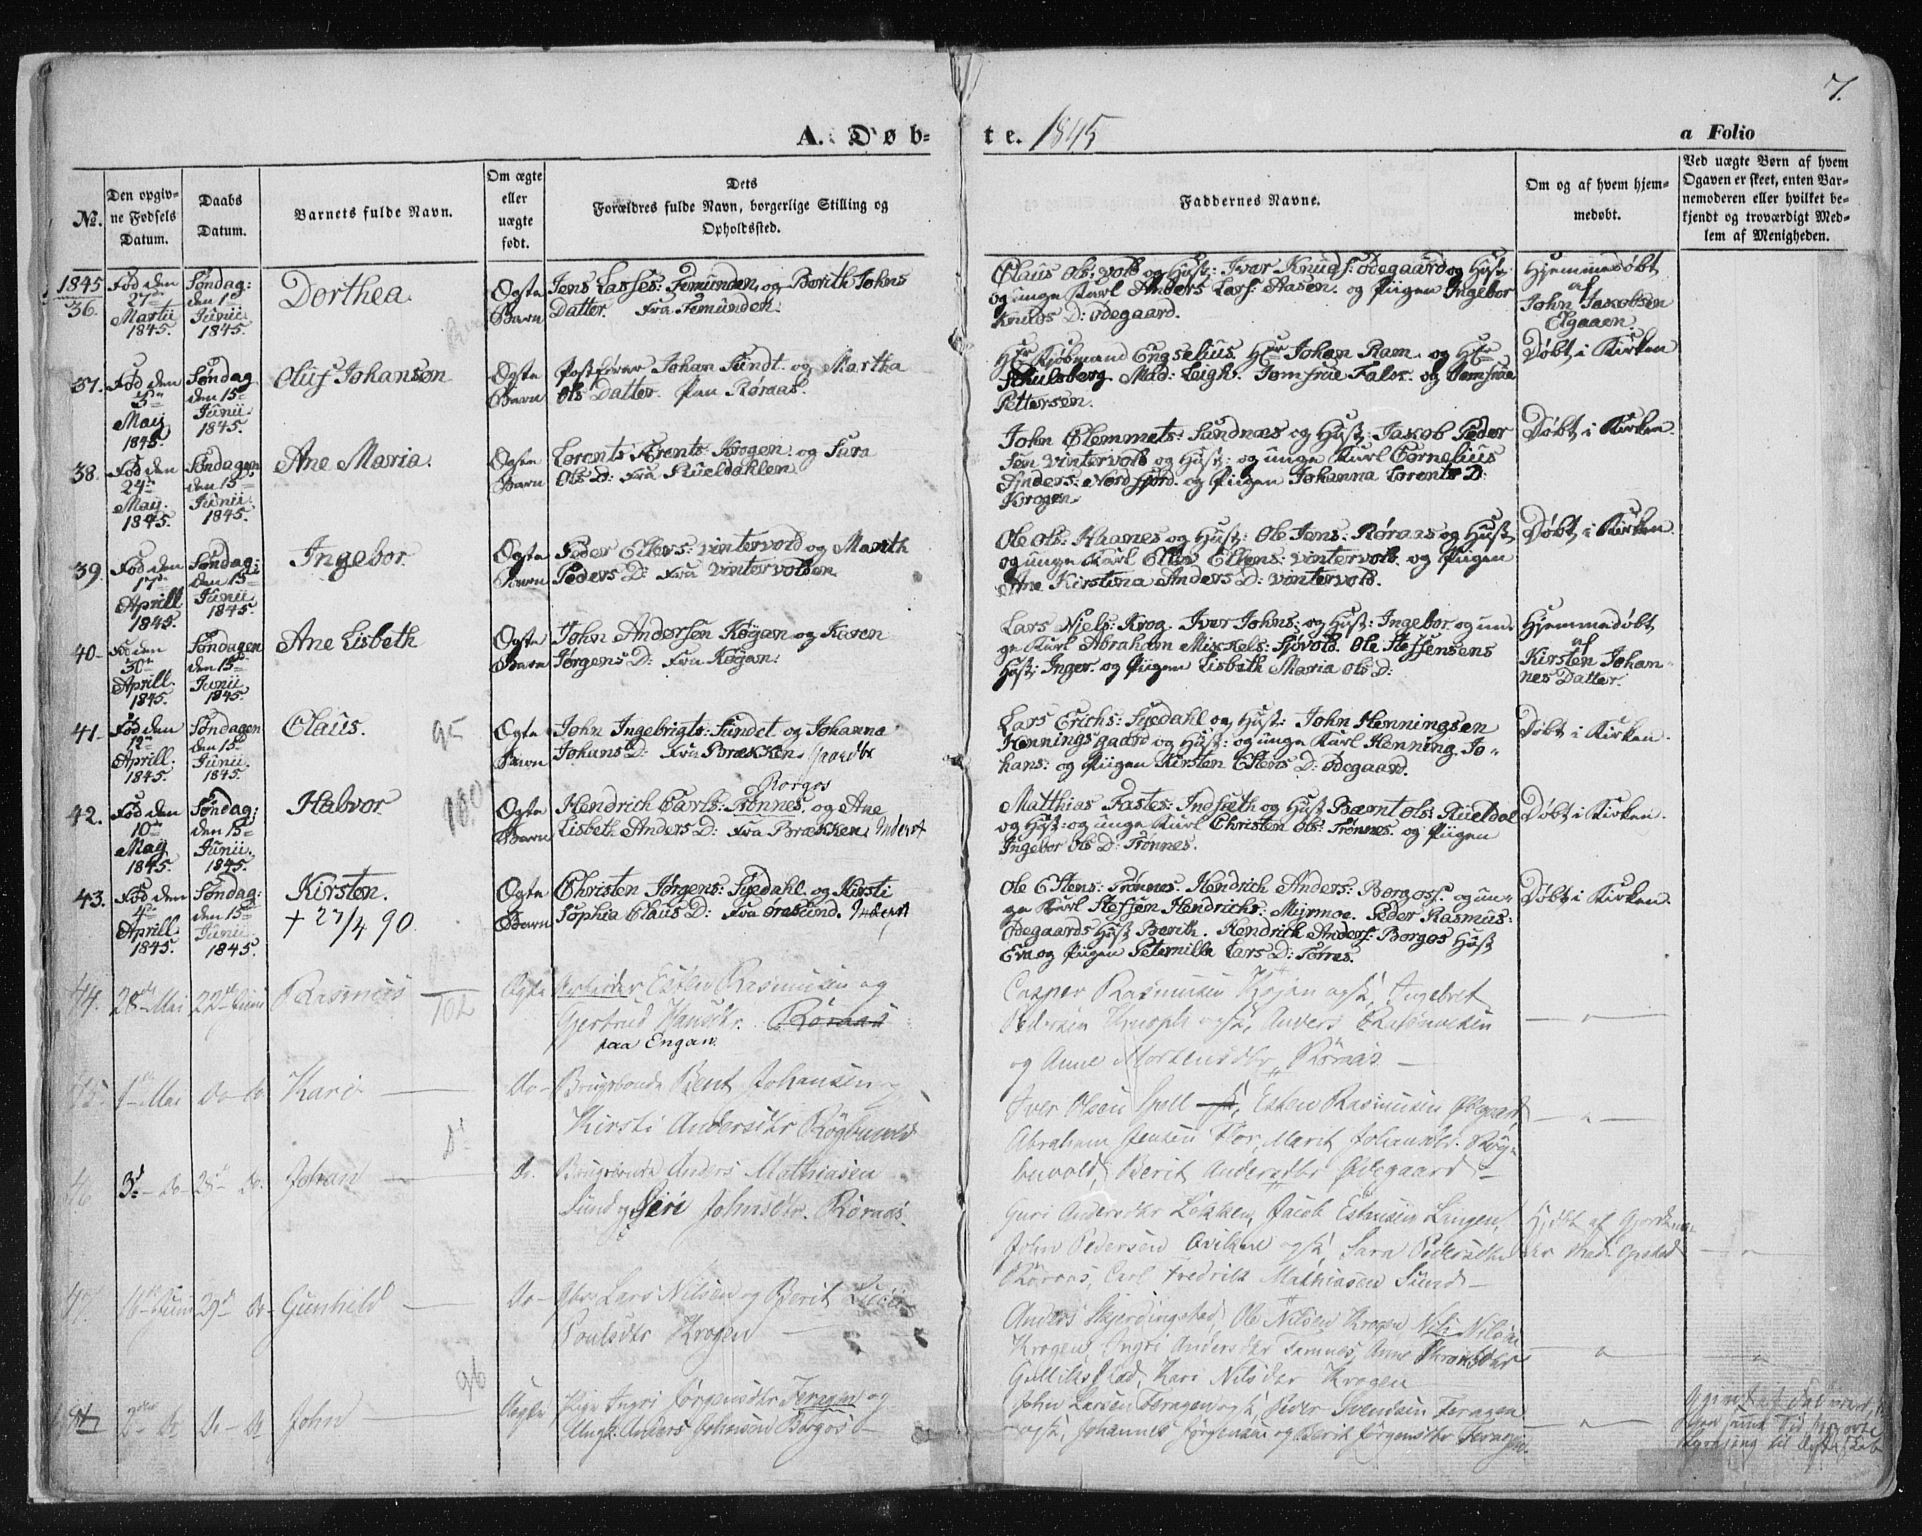 7.
A. Døb-
te. 1845
a Folio
No.
Den opgiv-
ne Fødsels
Datum.
Daabs
Datum.
Barnets fulde Navn.
Om ægte
eller
uægte
født.
Dets
Forældres fulde Navn, borgerlige Stilling og
Opholdssted.
Faddernes Navne.
Om og af hvem hjem-
medøbt.
Ved uægte Børn af hvem
Opgaven er skeet, enten Bar-
nemoderen eller hvilket be-
kjendt og troværdigt Med-
lem af Menigheden.
1845
36.
Fød den
27de
Martii
1845.
Søndag:
den 1ste
Junii
1845.
Dorthea
Ægte
Barn
Jens Lasses: Femunden og Borith Johns
Datter. Fra Femunden.
Claus Ols: vold og Hust: Iver Knuds: Ødegaard og Hust
og unge Karl Anders Lars: Aasen. og Piigen Ingebor
Knuds D: Ødegaard.
Hjemmedøbt
af
John Jakobsen
Elgaaen.
37.
Fød den
5te
May
1845.
Søndag
den 15de
Junii
1845.
Oluf Johansen
Ægte
Barn
Postfører Johan Sundt. og Martha
Ols Datter. Paa Røraas.
Hr Kjøbmand Engzelius. Hr Johan Ram. og Hr
Schulsberg Mad: Leigh. Jomfrue Falor. og Jomfrue
Pettersen.
Døbt i Kirken
38.
Fød den
24de
May
1845.
Søndagen
den 15de
Junii
1845.
Ane Maria.
Ægte
Barn
Lorents Lorents: Krogen. og Sara
Ols D: Fra Rueldahlen
John Clemmets: Sundnæs og Hust: Jakob Peder
sen Vintervold og Hust: og unge Karl Cornelius
Anders: Nordfjord. og Piigen Johanna Lorents D:
Krogen.
Døbt i Kirken.
39.
Fød den
17de
Aprill
1845.
Søndag;
den 15de
Junii
1845.
Ingebor
Ægte
Barn
Peder Ellevs: Vintervold og Marith
Peders D: Fra Vintervolden
Ole Ols: Haanes og Hust: Ole Jens: Røraas og Hust
og unge Karl Ellev Estens: Vintervold. og Piigen
Ane Kirstina Anders D: Vintervold.
Døbt i Kirken
40
Fød den
30te
Aprill
1845.
Søndagen
den 15de
Junii
1845.
Ane Lisbeth
Ægte
Barn
John Andersen Køjan og Karen
Jørgens D: Fra Køjan:
Lars Njels: Krog. Iver Johns: og Hust: Ingebor og un-
ge Karl Abraham Mikkels: Sjøvold. Ole Steffensens
Hust: Inger. og Piigen Lisbeth Maria Ols D:
Hjemmedøbt
af
Kirsten Johan-
nes Datter.
41
Fød den
12te
Aprill.
1845
Søndagen
den 15de
Junii
1845
Claus.
95
Ægte
Barn
John Ingebrigts: Sundet og Johanna
Johans D: Fra Brækken. Gaardbr
Lars Erichs: Sysdahl og Hust: John Henningsen
Henningsgaard og Hust: og unge Karl Henning Jo-
hans: og Piigen Kirsten Estens D: Ødegaard.
Døbt i Kirken.
42.
Fød den
10de
May
1845.
Søndag;
den 15de
Junii.
1845.
Halvor
180
Ægte
Barn
Borgos
Hendrich Carls: Trønnes. og Ane
Lisbeth Anders D: Fra Brækken. Inderst
Matthias Fastes: Indsæth og Hust Bærnt Ols: Rueldal
og Hust: og unge Karl Christen Ols: Trønnes. og Piigen
Ingebor Ols D: Trønnes.
Døbt i Kirken.
43.
Fød den
4de
Aprill
1845.
Søndag:
den 15de
Junii
1845.
Kirsten.
+ 27/4 90.
Ægte
Barn
Christen Jørgens: Sysdahl. og Kirsti
Sophia Claus D: Fra Øresund. Inderst
Ole Estens: Trønnes. Hendrich Anders: Borgos. og un-
ge Karl Steffen Hendrichs: Myrmoe. Peder Rasmus:
Ødegaards Hust Berith. Hendrich Anders: Borgos Hust
Eva og Piigen Peternille Lars D: Torres.
Døbt i Kirken.
44.
28de Mai
22de Juni
Rasmus
102
Ægte
Arbeider Esten Rasmussen og
Gertrud Hansdtr. Røraas
paa Engan.
Casper Rasmusen Kojan ogsk, Ingebret
Pedersen Knoph ogsk, Anders
og Anne Mortensdtr, Röraas
45.
1ste Mai
do do
Kari
do
Brugsbonde Bent Johansen og
Kirsti Andersdtr Röghuvold
Iver Olsen Spell, Esten Rasmusen Ødegaard,
Abraham Jensen Flor, Marit Johansdtr. Røg-
huvold, Berit Andersdtr Ødegaard
46
3d do
25d do.
Johan
do.
Brugsbonde Anders Mathiasen
Sund og Siri Johnsdtr. Röraas.
Guri Andersdtr Løkken, Jacob Estensen Lingen,
John Pedersen Qvikne ogsk, Sara Pedersdtr
Röraas, Carl Fredrik Mathiasen Sund
Hjdöbt af Gjordemo-
der Mad. Opsted
47.
16de Juni
29d do
Gunhild
do
Gbr. Lars Nilsen og Berit
Poulsdtr Krogen
Anders Skjerdingstad, Ole Nilsen Krogen, Nils Nilsen
Krogen, Ingri Andersdtr Tamnes, Anne
Gullikstad, Kari Nilsdtr Krogen
96
48
do do
John
Uægte
Pige Ingri Jørgensdtr Feragen og
Ungk: Anders Johnsen Borgos
John Larsen Feragen ogsk, Peder Svendsen Feragen
ogsk, Johannes Jörgensen og Berit Jörgensdtr Feragen.